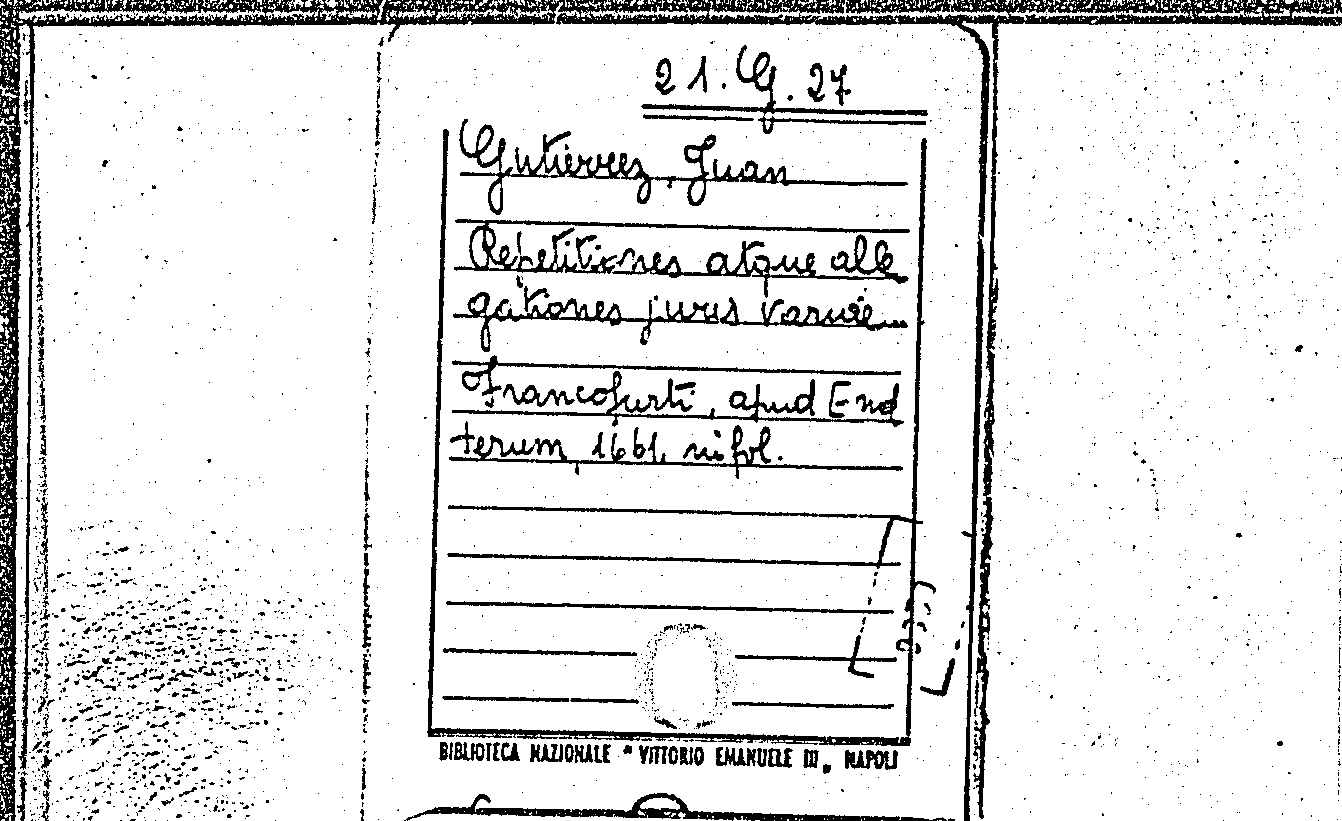 21.G.27
Gutierrez, Juan
Repetitiones atque alle
gationes juris variae...
Francofurti, apud End
terum, 1661, in fol.
BIBLIOTECA NAZIONALE "VITTORIO EMANUELE III" NAPOLI